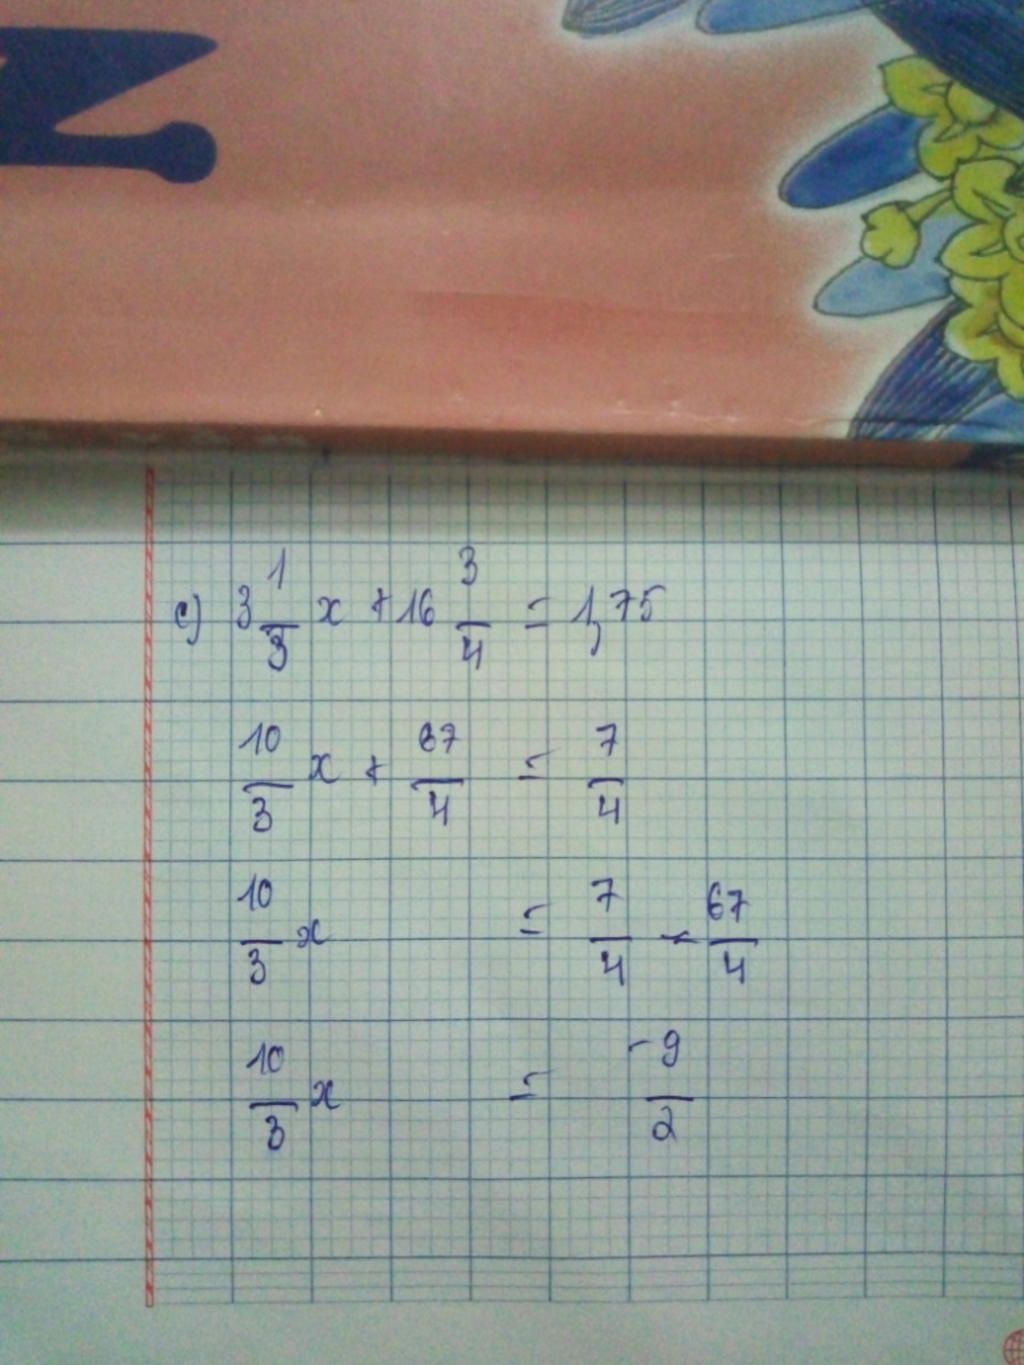 c) 3 1/3 x + 16 3/4 = 1,75
10/3 x + 67/4 = 7/4
10/3 x = 7/4 - 67/4
10/3 x = -9/2